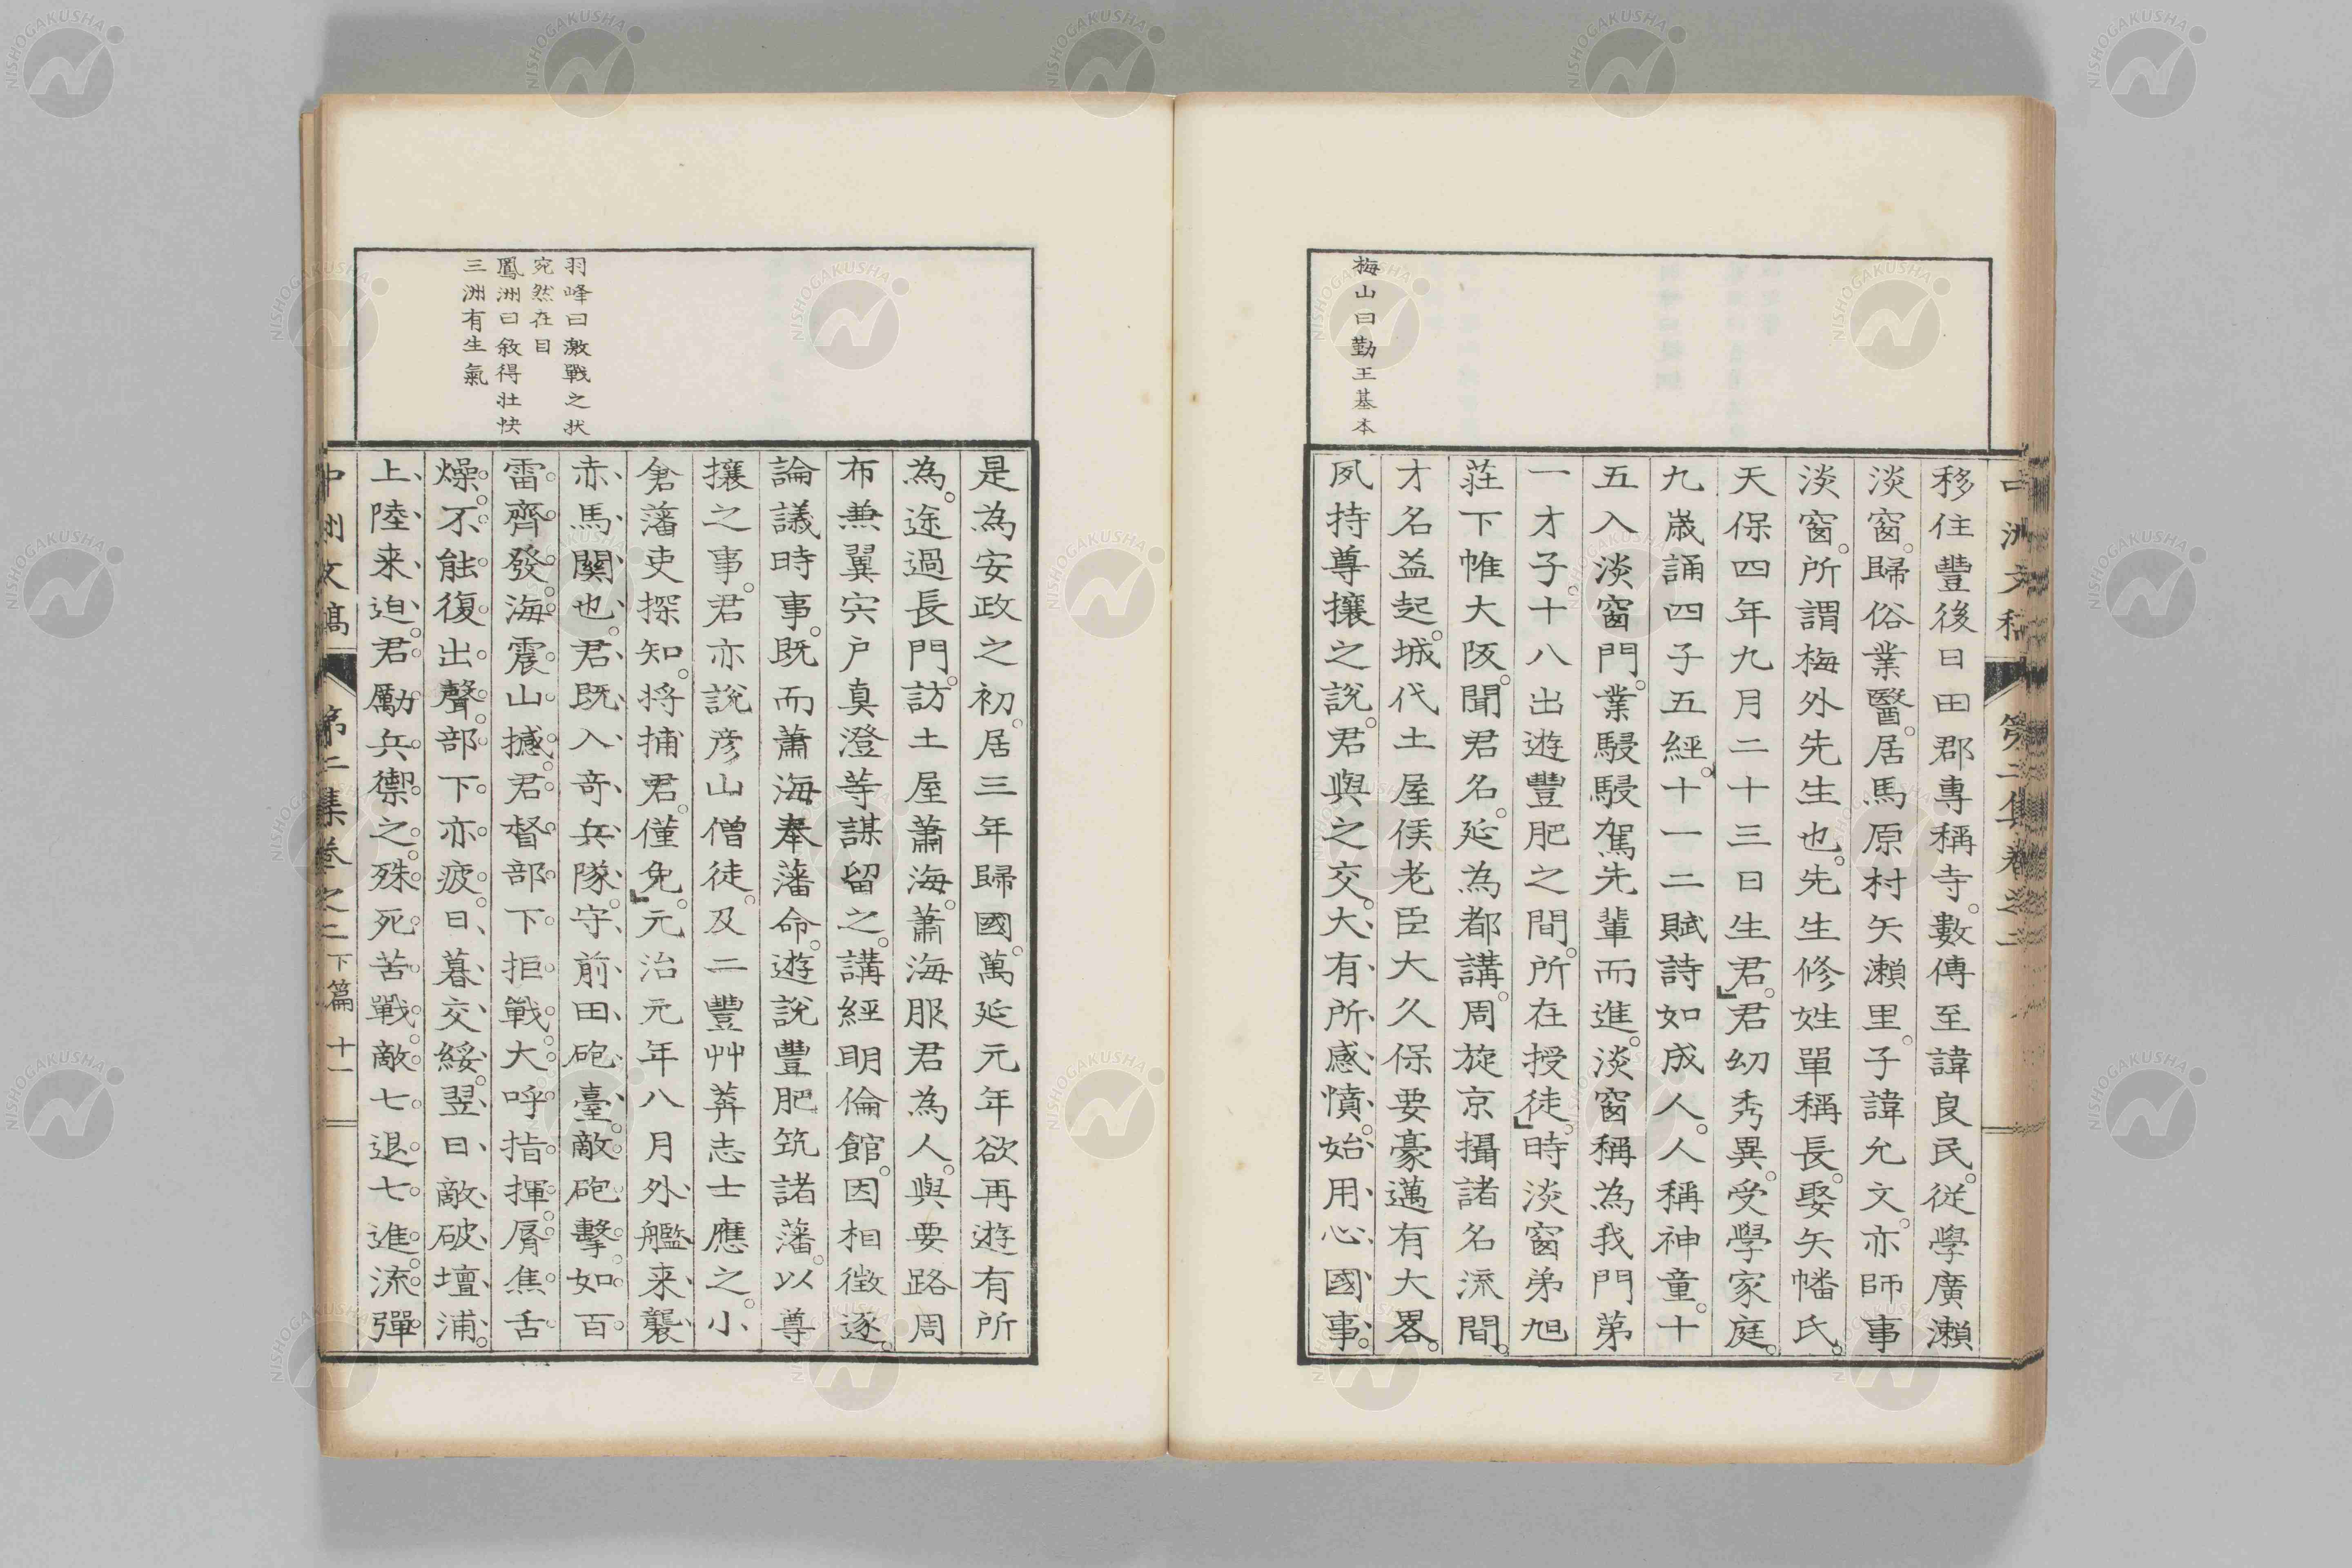 移住豐後日田郡專稱寺。數傳至諱良民。従學廣瀬
淡窗。歸俗業醫。居馬原村矢瀬里。子諱允文。亦師事
淡窗。所謂梅外先生也。先生修姓單稱長。娶矢幡氏。
天保四年九月二十三日生君。」君幼秀異。受學家庭。
九歳誦四子五經。十一二賦詩如成人。人稱神童。十
五入淡窗門。業駸駸駕先輩而進。淡窗稱為我門第
一才子。十八出遊豐肥之間。所在授徒。」時淡窗弟旭
莊下帷大阪。聞君名。延為都講。周旋京攝諸名流間。
才名益起。城代土屋侯老臣大久保要豪邁有大畧。
夙持尊攘之說。君與之交。大有所感憤。始用心國事。
梅山曰勤王基本
是為安政之初。居三年歸國。萬延元年欲再遊有所
為。途過長門。訪土屋蕭海。蕭海服君為人。與要路周
布兼翼宍戶真澄等謀留之。講經明倫館。因相徴逐。
論議時事。既而蕭海奉藩命。遊說豐肥筑諸藩。以尊
攘之事。君亦說彦山僧徒。及二豐艸莽志士應之。小
倉藩吏探知。将捕君。僅免。」元治元年八月外艦来襲
赤馬關也。君既入奇兵隊。守前田砲臺。敵砲擊如百
雷齊發。海震山撼。君督部下拒戰。大呼指揮。脣焦舌
燥。不能復出聲。部下亦疲。日暮交綏。翌日敵破壇浦。
上陸来迫。君勵兵禦之。殊死苦戰。敵七退七進。流彈
羽峰曰激戰之状
宛然在目
鳳洲曰敘得壮快
三洲有生氣
中洲文稿 第二集卷之二 下篇 十一